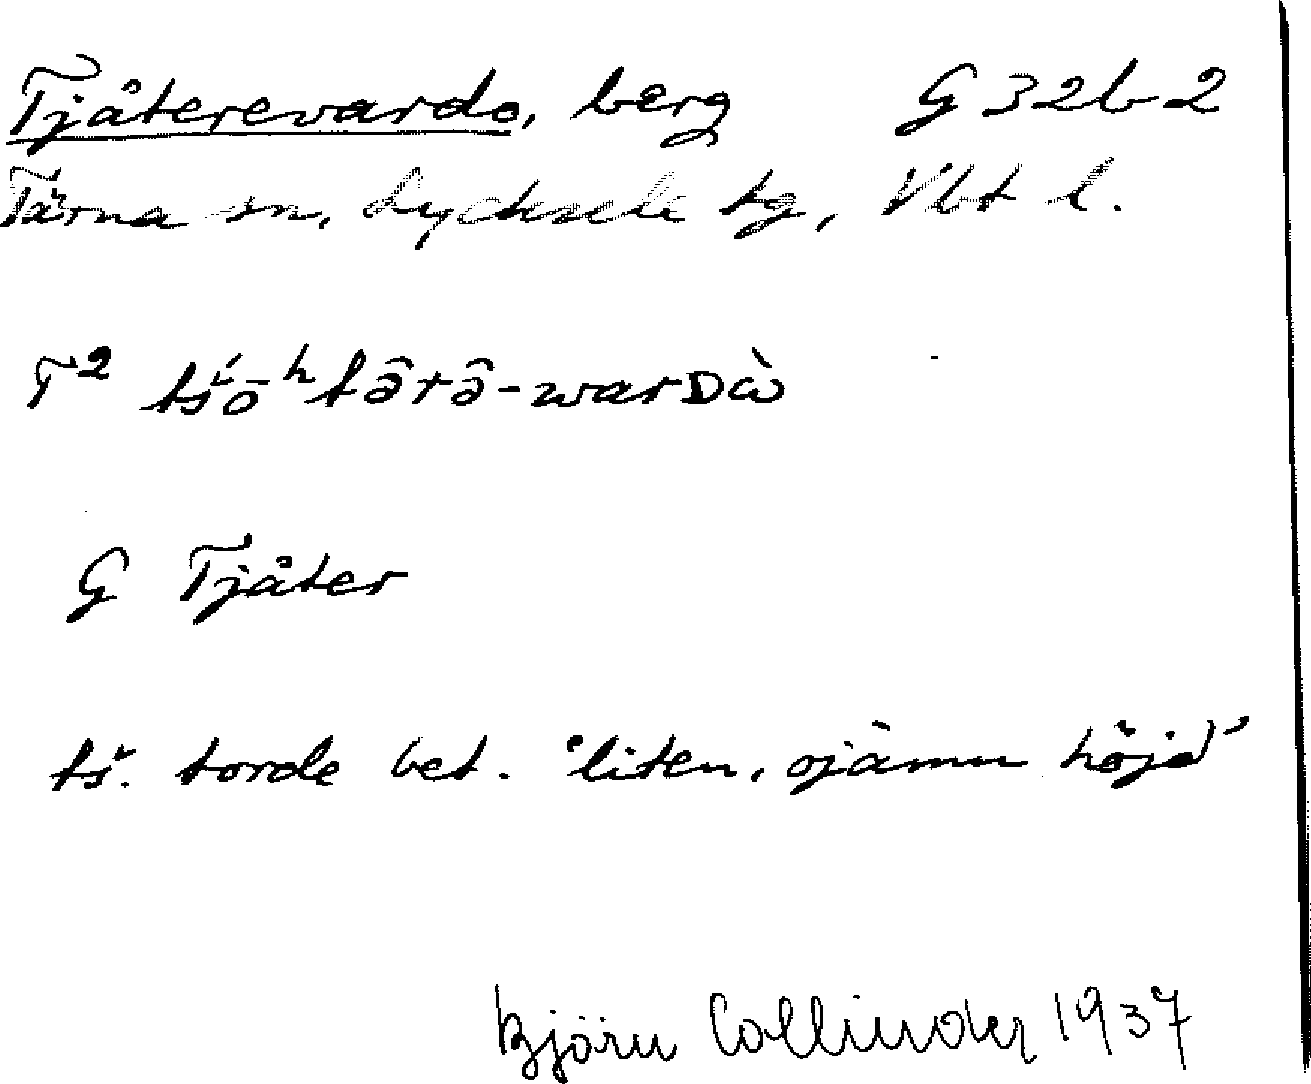 Tjåterevardo, berg G 32b2
Tärna sn, Lycksele tg, Vbt l.
T² tš́ō ʰtə̂rə̂-warDὼ
G Tjåter
tš. torde bet. 'liten, ojämn höjd'
Björn Collinder 1937